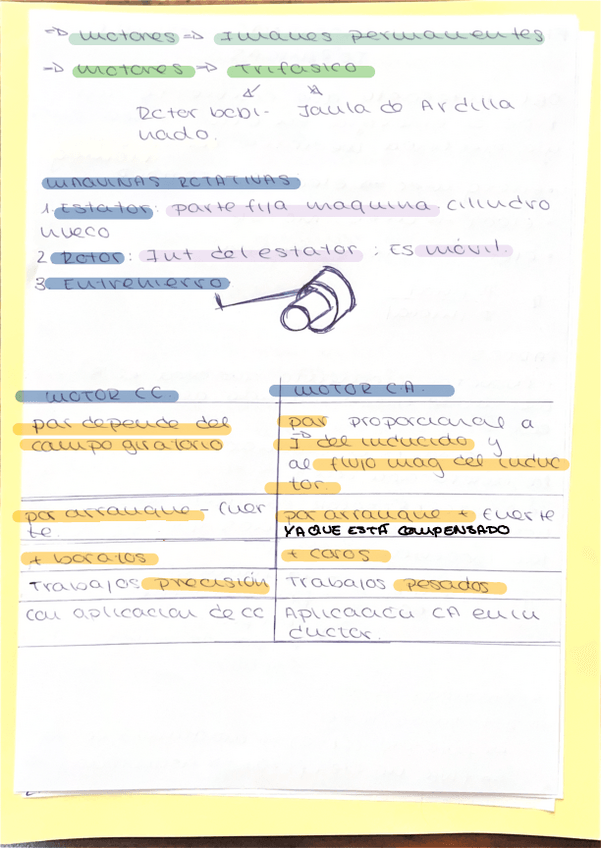 => Motores => Imanes permanentes
=> Motores => Trifásico
Rotor bobi- Jaula de Ardilla
nado.
MAQUINAS ROTATIVAS
1. Estator: parte fija maquina. cilindro
hueco
2 Rotor: Int del estator ; Es móvil.
3 Entrehierro
MOTOR CC.
MOTOR C.A.
par depende del
campo giratorio
par proporcional a
I del inducido y
al flujo mag del induc
tor.
par arranque - fuer
te.
par arranque + fuerte
YA QUE ESTÁ COMPENSADO
+ baratos
+ caros
Trabajos precisión
Trabajos pesados
Con aplicacion de cc
Aplicación CA en in
ductor.